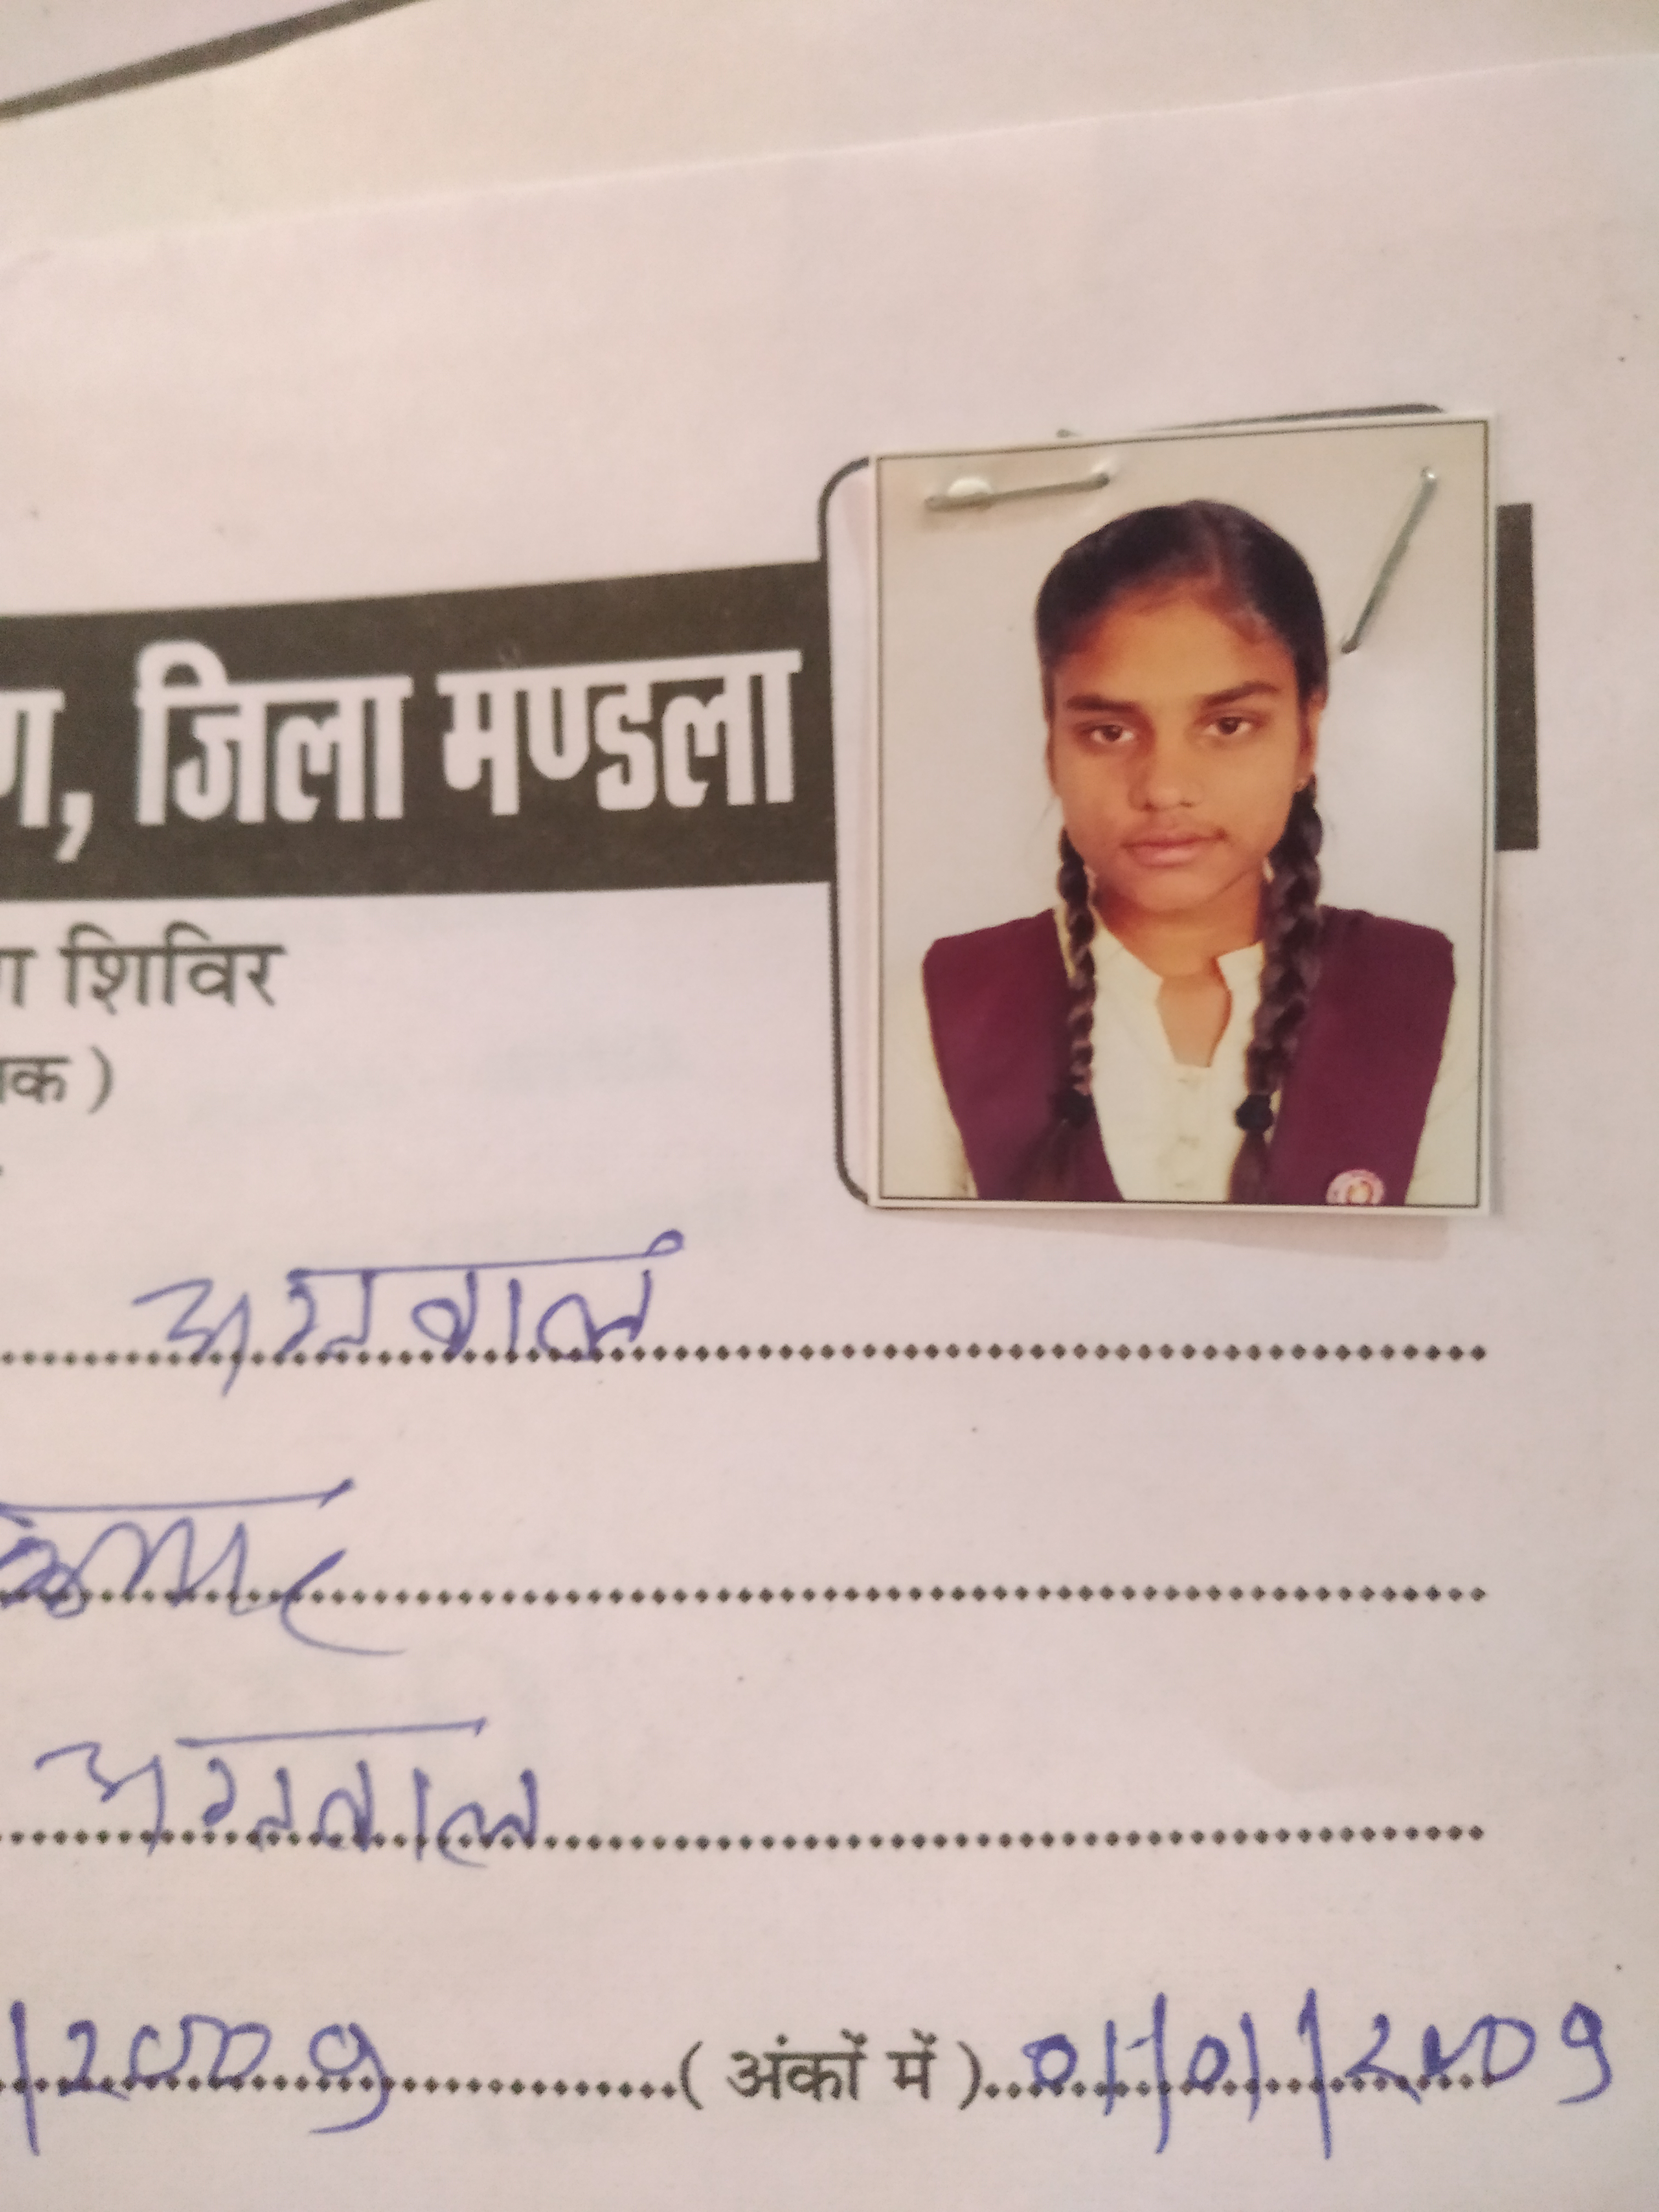 ण, जिला मण्डला
शिविर
अग्रवाल
कुमार
अग्रवाल
/2009 (अंकों में) 01/01/2009